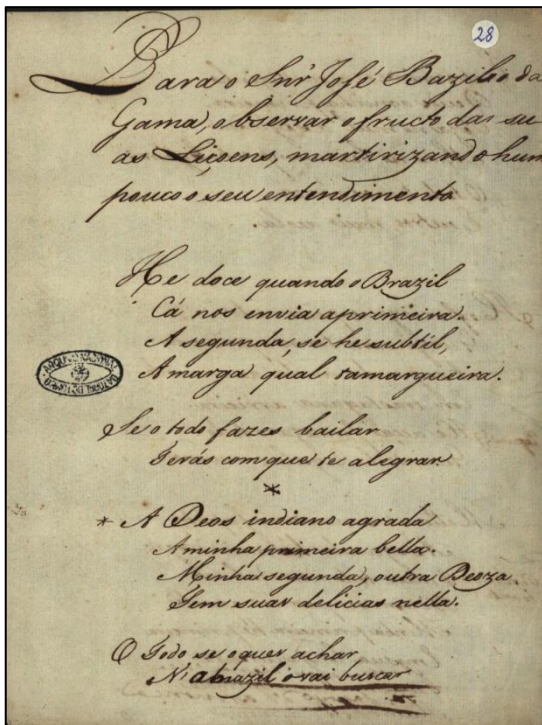 28
Para o Snr José Bazilio da
Gama, observar o fructo das su-
as Liçoens, martirizando hum
pouco o seu entendimento
He doce quando o Brazil
Cá nos envia a primeira.
A segunda, se he subtil,
Amarga qual tamargueira.
Se o todo fazes bailar
Terás com que te alegrar.
*
* A Deos indiano agrada
A minha primeira bella.
Minha segunda, outra Deoza
Tem suas delicias nella.
O Todo se o quer achar
brazil o vai buscar